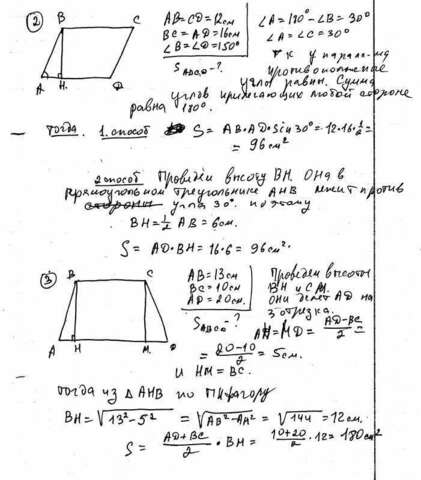 2
B C
A H. D
AB=CD=12см
BC=AD=16см
∠B=∠D=150°
S ABCD -?
∠A=180°-∠B=30°
∠A=∠C=30°
противоположные
углы равны. Сумма
углов прилегающих любой стороне
равна 180°.
Тогда. 1. способ S = AB·AD·Sin30° = 12·16·1/2 =
= 96см²
2 способ Проведем высоту BH. Она в
прямоугольном треугольнике AHB лежит против
стороны угла 30°. поэтому
BH = 1/2 AB = 6см.
S = AD·BH = 16·6 = 96см².
3
B C
A H M. D
AB=13см
BC=10см
AD=20см.
S ABCD -?
Проведем высоты
BH и CM.
они делят AD на
3 отрезка.
AH = MD = AD-BC/2 =
= 20-10/2 = 5см.
и HM=BC.
тогда из ΔAHB по Пифагору
BH = √13²-5² = √AB²-AH² = √144 = 12см.
S = AD+BC/2 · BH = 10+20/2 · 12 = 180см²